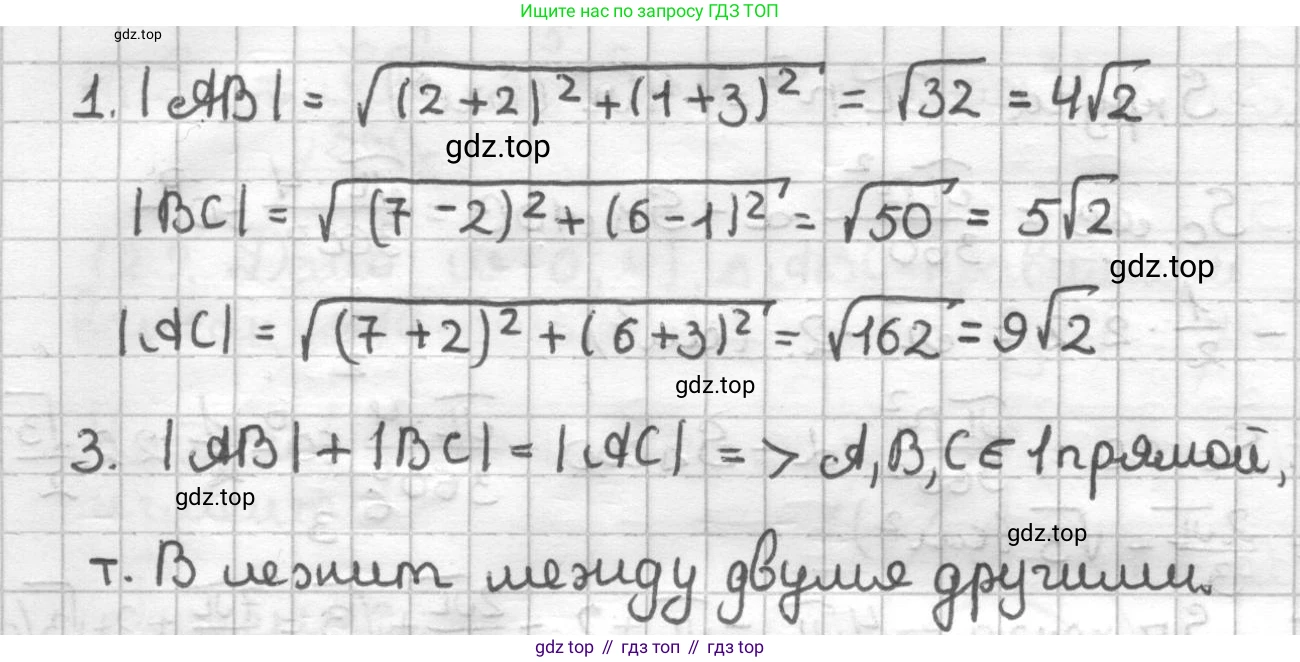 Ищите нас по запросу ГДЗ ТОП
gdz.top
1. |AB| = √((2+2)² + (1+3)²) = √32 = 4√2
gdz.top
|BC| = √((7-2)² + (6-1)²) = √50 = 5√2
gdz.top
|AC| = √((7+2)² + (6+3)²) = √162 = 9√2
gdz.top
3. |AB| + |BC| = |AC| => A, B, C ∈ 1 прямой,
gdz.top
gdz.top
т. В лежит между двумя другими.
gdz.top // гдз топ // gdz top